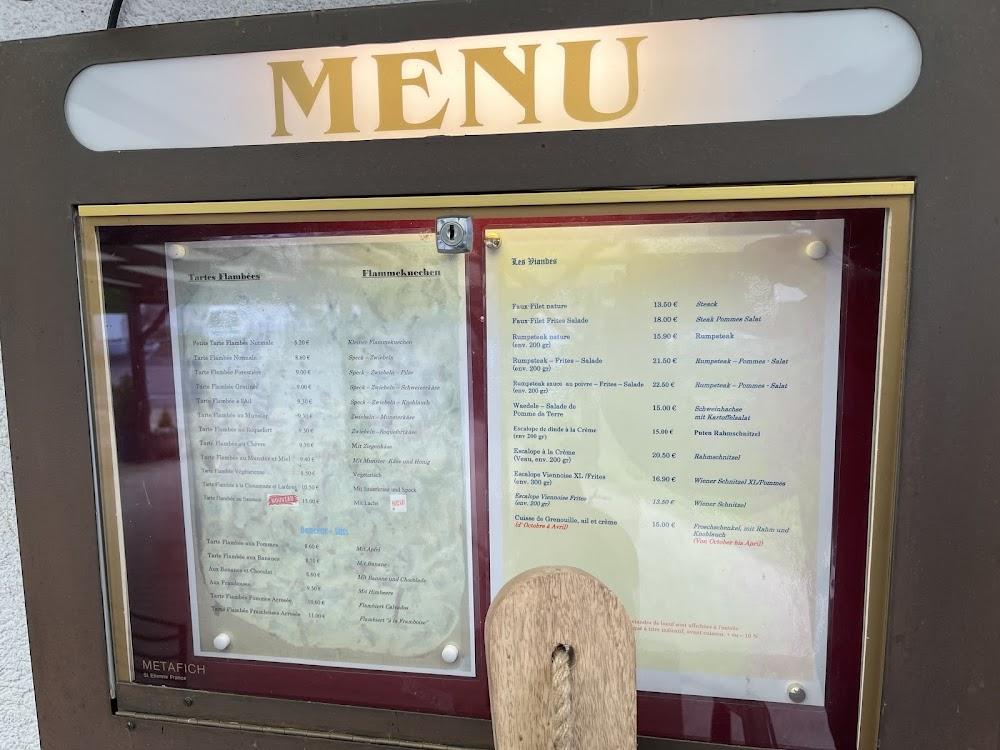 MENU
Tartes Flambées Flammekuechen
Petite Tarte Flambée Normale 5.20 € Kleiner Flammekuechen
Tarte Flambée Normale 8.60 € Speck – Zwiebeln
Tarte Flambée Forestière 9.00 € Speck – Zwiebeln – Pilze
Tarte Flambée Gratinée 9.00 € Speck – Zwiebeln – Schweizerkäse
Tarte Flambée à l'Ail 9.30 € Speck – Zwiebeln – Knoblauch
Tarte Flambée au Munster 9.30 € Zwiebeln – Munsterkäse
Tarte Flambée au Roquefort 9.30 € Zwiebeln – Roquefortkäse
Tarte Flambée au Chèvre 9.30 € Mit Ziegenkäse
Tarte Flambée au Munster et Miel 9.40 € Mit Munster-Käse und Honig
Tarte Flambée Végétarienne 8.50 € Vegetarisch
Tarte Flambée à la Choucroute et Lardons 10.50 € Mit Sauerkraut und Speck
Tarte Flambée au Saumon NOUVEAU 11.00 € Mit Lachs
Tarte Flambée aux Pommes 8.60 € Mit Apfel
Tarte Flambée aux Bananes Mit Banane
Aux Bananes et Chocolat 8.80 € Mit Banane und Choclade
Aux Framboises 9.50 € Mit Himbeere
Tarte Flambée Pommes Arrosée 10.60 € Flambiert Calvados
Tarte Flambée Framboises Arrosée 11.00 € Flambiert "à la Framboise"
METAFICH
St Etienne France
Les Viandes
Faux-Filet nature 13.50 € Steack
Faux-Filet Frites Salade 18.00 € Steak Pommes Salat
Rumpsteak nature 15.90 € Rumpsteak
(env. 200 gr)
Rumpsteak – Frites – Salade 21.50 € Rumpsteak – Pommes - Salat
(env. 200 gr)
Rumpsteak sauce au poivre – Frites – Salade 22.50 € Rumpsteak – Pommes - Salat
(env. 200 gr)
Waedele – Salade de 15.00 € Schweinhachse
Pomme de Terre mit Kartoffelsalat
Escalope de dinde à la Crème 15.00 € Puten Rahmschnitzel
(env 200 gr)
Escalope à la Crème 20.50 € Rahmschnitzel
(Veau, env. 200 gr)
Escalope Viennoise XL /Frites 16.90 € Wiener Schnitzel XL/Pommes
(env. 300 gr)
Escalope Viennoise Frites 13.50 € Wiener Schnitzel
(env. 200 gr)
Cuisse de Grenouille, ail et crème 15.00 € Froschschenkel, mit Rahm und
(d' Octobre à Avril) Knoblauch
(Von October bis April)
viandes de bœuf sont affichées à l'entrée
à titre indicatif, avant cuisson. + ou – 10 %